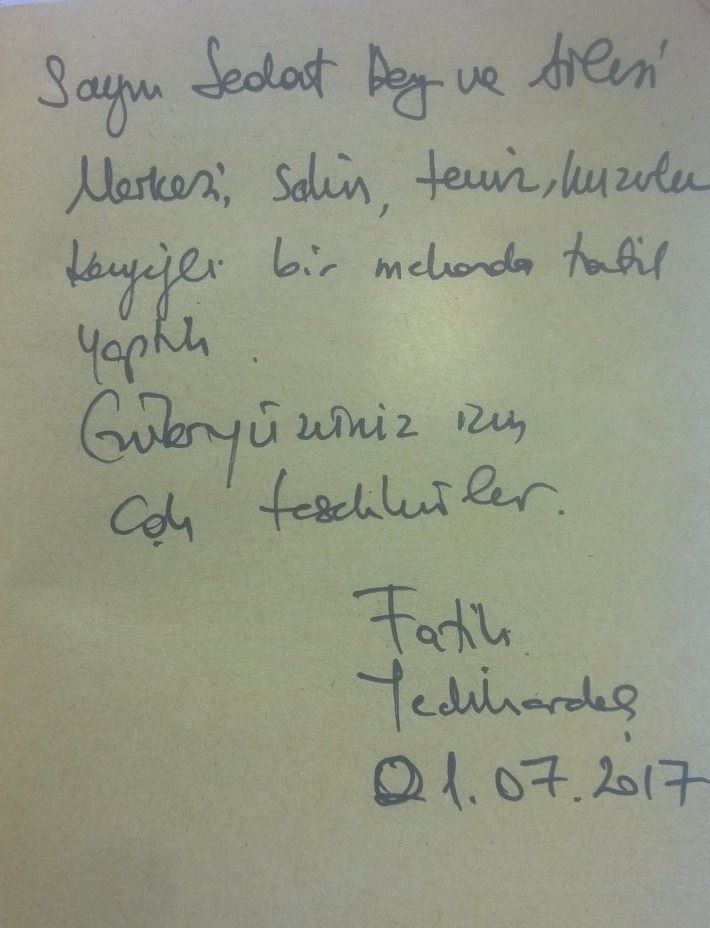 Sayın Sedat Bey ve Ailesi
Merkezi, sakin, temiz, huzurlu
keyifli bir mekanda tatil
yaptık.
Güleryüzünüz için
Çok teşekkürler.
Fatih
Yedikardeş
01.07.2017